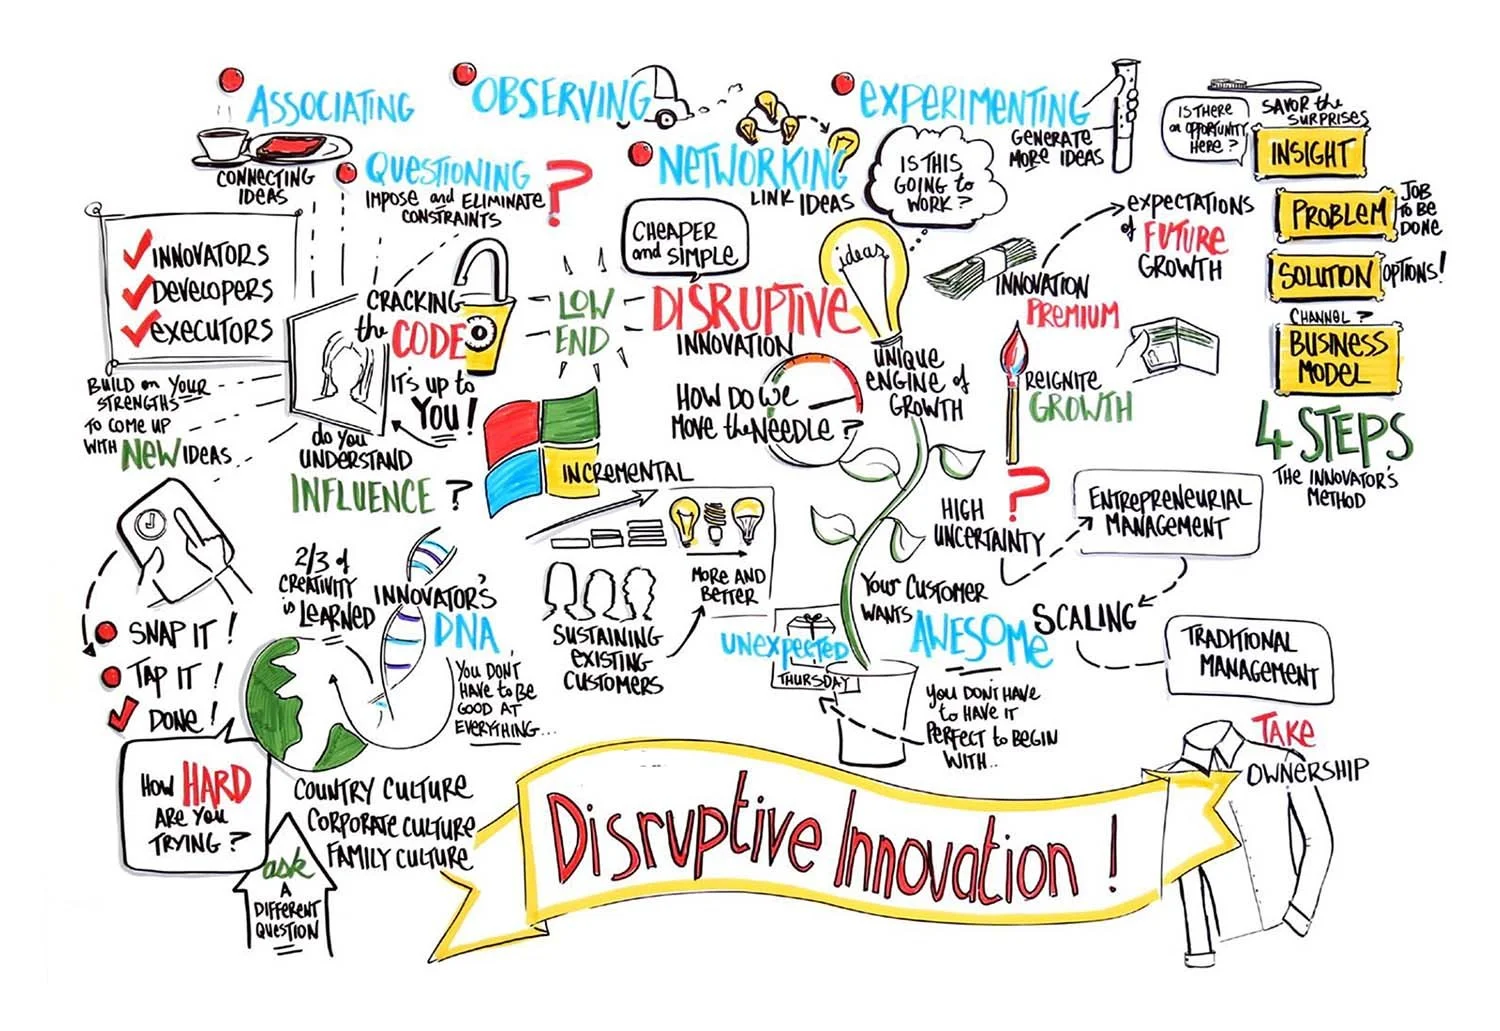 ASSOCIATING
CONNECTING
IDEAS
OBSERVING
QUESTIONING
IMPOSE and ELIMINATE
CONSTRAINTS
?
NETWORKING
LINK IDEAS
EXPERIMENTING
GENERATE
MORE IDEAS
IS THIS
GOING to
WORK?
IS THERE
an OPPORTUNITY
HERE?
SAVOR the
SURPRISES
INSIGHT
PROBLEM
JOB
TO BE
DONE
SOLUTION
OPTIONS!
CHANNEL?
BUSINESS
MODEL
4 STEPS
THE INNOVATOR'S
METHOD
INNOVATORS
DEVELOPERS
EXECUTORS
BUILD on YOUR
STRENGTHS
TO COME UP
WITH NEW IDEAS
CRACKING
the CODE
IT'S UP to
YOU!
do you
UNDERSTAND
INFLUENCE?
LOW
END
CHEAPER
and SIMPLE
DISRUPTIVE
INNOVATION
HOW DO WE
MOVE the NEEDLE?
ideas
UNIQUE
ENGINE of
GROWTH
INNOVATION
PREMIUM
EXPECTATIONS
of FUTURE
GROWTH
REIGNITE
GROWTH
?
HIGH
UNCERTAINTY
ENTREPRENEURIAL
MANAGEMENT
SCALING
TRADITIONAL
MANAGEMENT
INCREMENTAL
MORE AND
BETTER
SUSTAINING
EXISTING
CUSTOMERS
2/3 of
CREATIVITY
is LEARNED
INNOVATOR'S
DNA
YOU DON'T
HAVE to BE
GOOD AT
EVERYTHING...
UNEXPECTED
THURSDAY
YOUR CUSTOMER
WANTS AWESOME
YOU DON'T HAVE
to HAVE IT
PERFECT to BEGIN
WITH..
SNAP IT!
TAP IT!
DONE!
HOW HARD
ARE YOU
TRYING?
ask
A
DIFFERENT
QUESTION
COUNTRY CULTURE
CORPORATE CULTURE
FAMILY CULTURE
Disruptive Innovation!
TAKE
OWNERSHIP